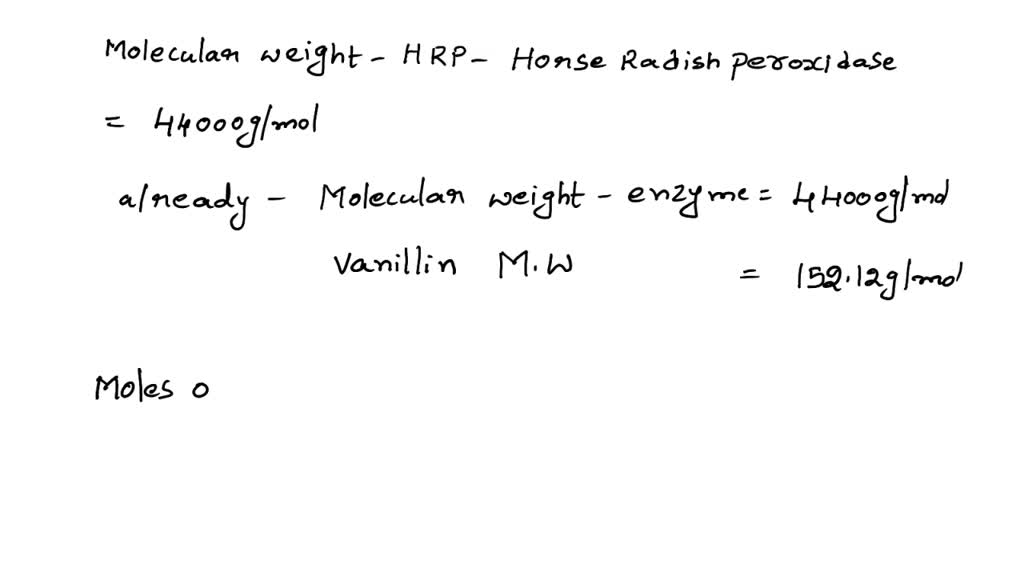 Molecular weight - HRP - Horse Radish peroxidase
= 44000g/mol
already - Molecular weight - enzyme = 44000g/mol
Vanillin M.W = 152.12g/mol
Moles o